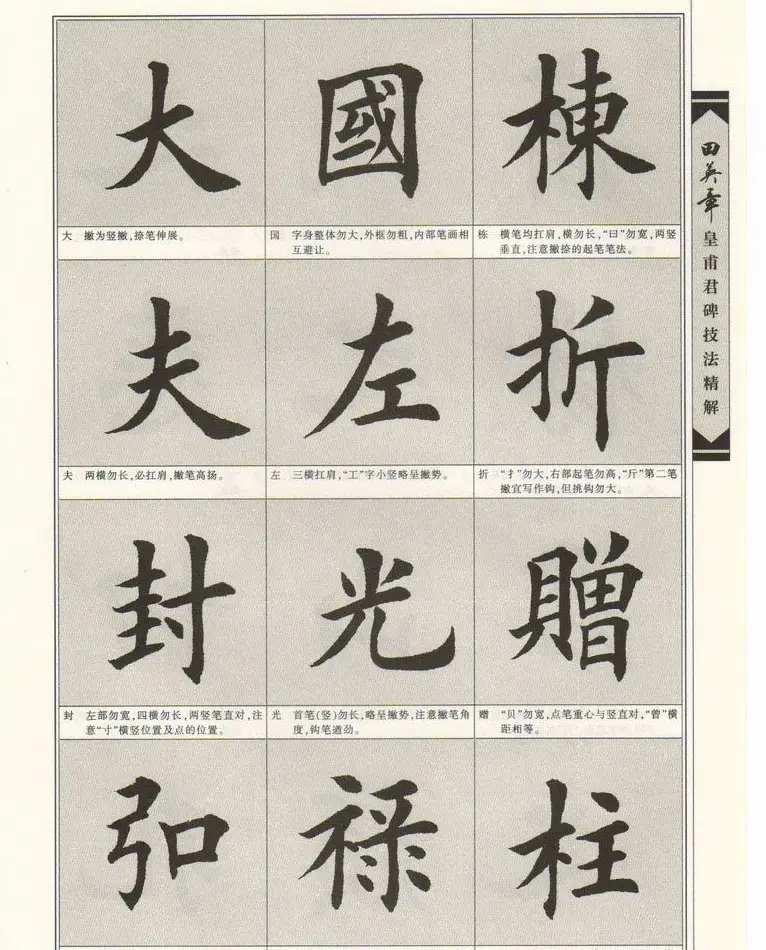 大
國
棟
大 撇为竖撇,捺笔伸展。
国 字身整体勿大,外框勿粗,内部笔画相
互避让。
栋 横笔均扛肩,横勿长,“曰”勿宽,两竖
垂直,注意撇捺的起笔笔法。
夫
左
折
夫 两横勿长,必扛肩,撇笔高扬。
左 三横扛肩,“工”字小竖略呈撇势。
折 “扌”勿大,右部起笔勿高,“斤”第二笔
撇宜写作钩,但挑钩勿大。
封
光
贈
封 左部勿宽,四横勿长,两竖笔直对,注
意“寸”横竖位置及点的位置。
光 首笔(竖)勿长,略呈撇势,注意撇笔角
度,钩笔遒劲。
赠 “贝”勿宽,点笔重心与竖直对,“曾”横
距相等。
弘
禄
柱
田英章
皇甫君碑技法精解